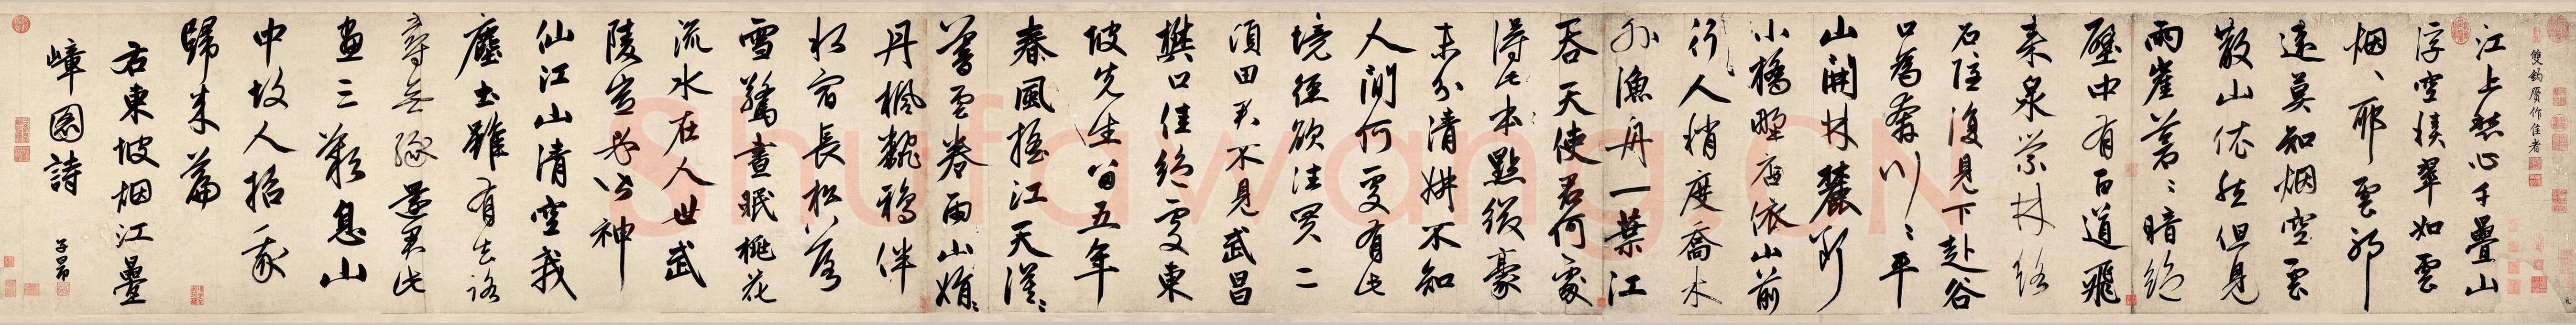 雙鈎贗作佳者
江上愁心千疊山
浮空積翠如雲
烟〻耶雲邪
遠莫知烟空雲
散山依然但見
兩崖蒼〻暗絕
壁中有百道飛
来泉縈林絡
石隱復見下赴谷
口為奔川〻平
山開林麓斷
小橋野店依山前
行人稍度喬木
外漁舟一葉江
吞天使君何處
得此本點綴毫
末分清妍不知
人間何處有此
境徑欲往買二
頃田君不見武昌
樊口佳絕處東
坡先生留五年
春風搖江天漠〻
暮雲卷雨山娟〻
丹楓翻鴉伴
水宿長松落
雪驚晝眠桃花
流水在人世武
陵豈必皆神
仙江山清空我
塵土雖有去路
尋無緣還君此
畫三歎息山
中故人招我
歸来篇
右東坡烟江疊
嶂圖詩
子昂
Shufawang.CN